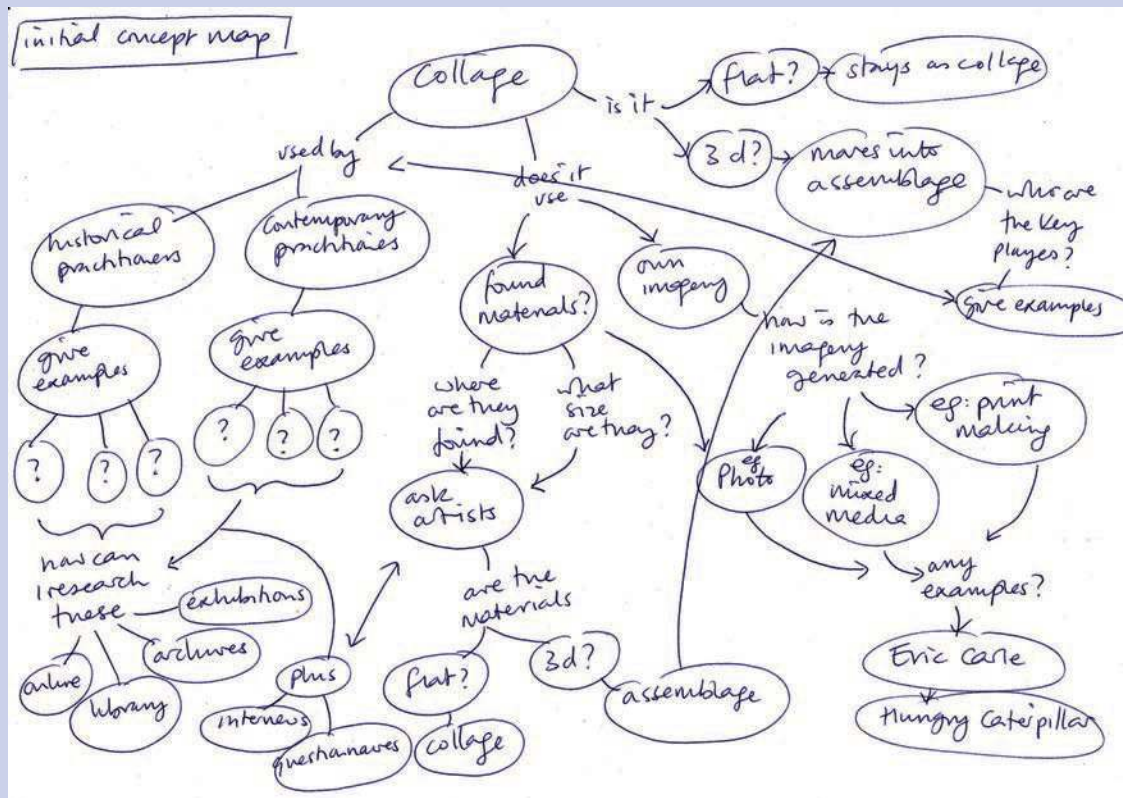 initial concept map
collage
is it
flat?
stays as collage
3d?
moves into
assemblage
who are
the key
players?
give examples
used by
historical
practitioners
contemporary
practitioners
give
examples
?
?
?
give
examples
?
?
?
how can
I research
these
exhibitions
archives
library
online
plus
interviews
questionnaires
does it
use
found
materials?
own
imagery
where
are they
found?
what
size
are they?
ask
artists
are the
materials
flat?
collage
3d?
assemblage
how is the
imagery
generated?
eg
Photo
eg:
mixed
media
eg: print
making
any
examples?
Eric Carle
Hungry Caterpillar